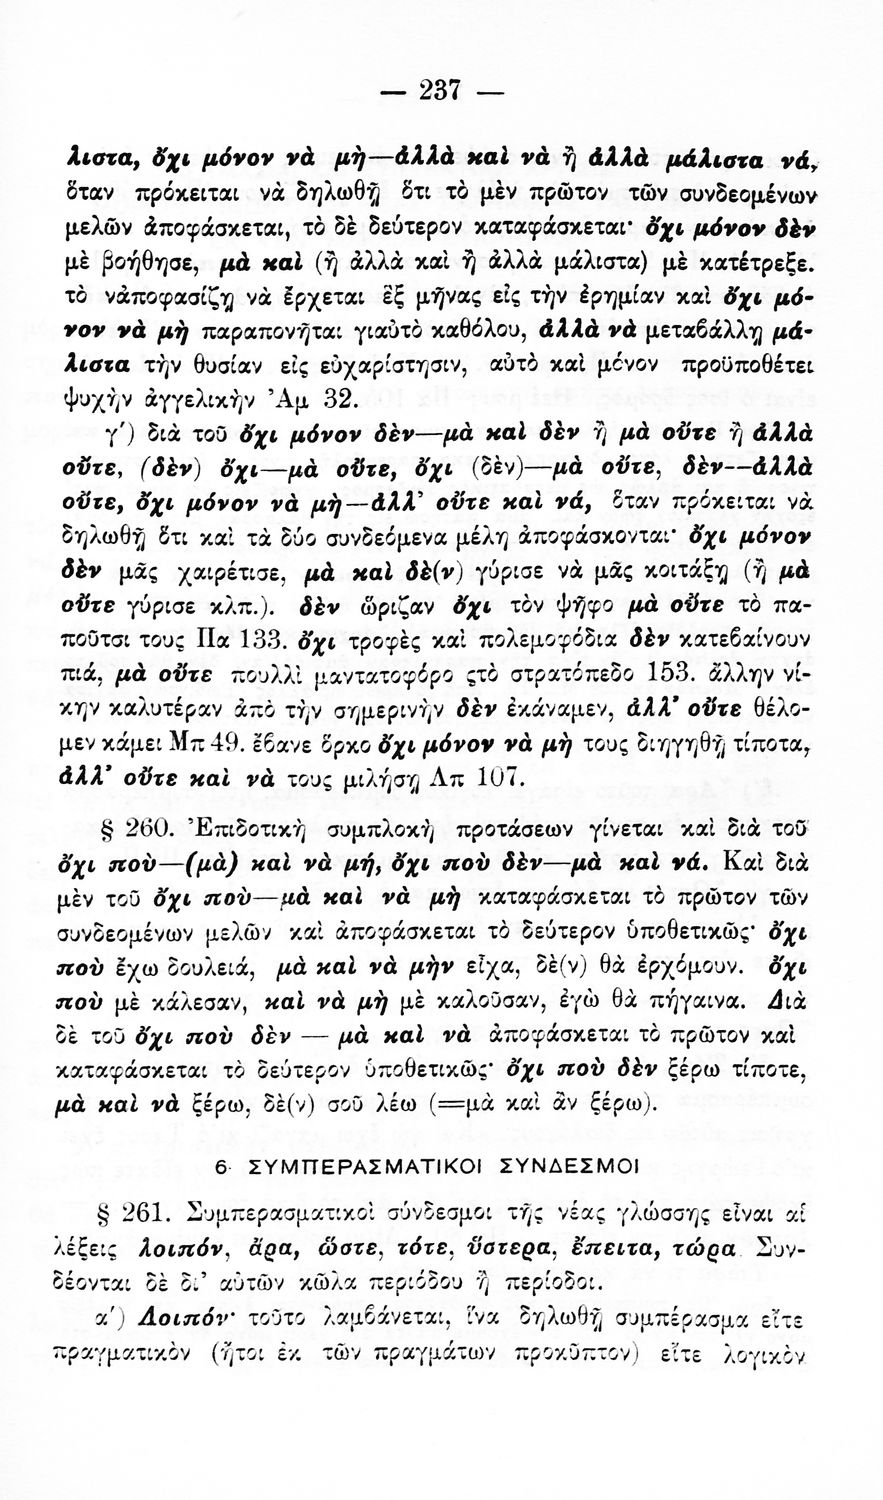 — 237 —
λιστα, ὄχι μόνον νὰ μὴ—ἀλλὰ καὶ νὰ ἢ ἀλλὰ μάλιστα νά,
ὅταν πρόκειται νὰ δηλωθῇ ὅτι τὸ μὲν πρῶτον τῶν συνδεομένων
μελῶν ἀποφάσκεται, τὸ δὲ δεύτερον καταφάσκεται· ὄχι μόνον δὲν
μὲ βοήθησε, μὰ καὶ (ἢ ἀλλὰ καὶ ἢ ἀλλὰ μάλιστα) μὲ κατέτρεξε.
τὸ νἀποφασίζῃ νὰ ἔρχεται ἓξ μῆνας εἰς τὴν ἐρημίαν καὶ ὄχι μό-
νον νὰ μὴ παραπονῆται γιαὐτὸ καθόλου, ἀλλὰ νὰ μεταβάλλῃ μά-
λιστα τὴν θυσίαν εἰς εὐχαρίστησιν, αὐτὸ καὶ μόνον προϋποθέτει
ψυχὴν ἀγγελικὴν Ἀμ 32.
γ′) διὰ τοῦ ὄχι μόνον δὲν—μὰ καὶ δὲν ἢ μὰ οὔτε ἢ ἀλλὰ
οὔτε, (δὲν) ὄχι—μὰ οὔτε, ὄχι (δὲν)—μὰ οὔτε, δὲν—ἀλλὰ
οὔτε, ὄχι μόνον νὰ μὴ—ἀλλ’ οὔτε καὶ νά, ὅταν πρόκειται νὰ
δηλωθῇ ὅτι καὶ τὰ δύο συνδεόμενα μέλη ἀποφάσκονται· ὄχι μόνον
δὲν μᾶς χαιρέτισε, μὰ καὶ δὲ(ν) γύρισε νὰ μᾶς κοιτάξῃ (ἢ μὰ
οὔτε γύρισε κλπ.). δὲν ὥριζαν ὄχι τὸν ψῆφο μὰ οὔτε τὸ πα-
ποῦτσι τους Πα 133. ὄχι τροφὲς καὶ πολεμοφόδια δὲν κατεβαίνουν
πιά, μὰ οὔτε πουλλὶ μαντατοφόρο ςτὸ στρατόπεδο 153. ἄλλην νί-
κην καλυτέραν ἀπὸ τὴν σημερινὴν δὲν ἐκάναμεν, ἀλλ’ οὔτε θέλο-
μεν κάμει Μπ 49. ἔβανε ὅρκο ὄχι μόνον νὰ μὴ τους διηγηθῇ τίποτα,
ἀλλ’ οὔτε καὶ νὰ τους μιλήσῃ Λπ 107.
§ 260. Ἐπιδοτικὴ συμπλοκὴ προτάσεων γίνεται καὶ διὰ τοῦ
ὄχι ποὺ—(μὰ) καὶ νὰ μή, ὄχι ποὺ δὲν—μὰ καὶ νά. Καὶ διὰ
μὲν τοῦ ὄχι ποὺ—μὰ καὶ νὰ μὴ καταφάσκεται τὸ πρῶτον τῶν
συνδεομένων μελῶν καὶ ἀποφάσκεται τὸ δεύτερον ὑποθετικῶς· ὄχι
ποὺ ἔχω δουλειά, μὰ καὶ νὰ μὴν εἶχα, δὲ(ν) θὰ ἐρχόμουν. ὄχι
ποὺ μὲ κάλεσαν, καὶ νὰ μὴ μὲ καλοῦσαν, ἐγὼ θὰ πήγαινα. Διὰ
δὲ τοῦ ὄχι ποὺ δὲν — μὰ καὶ νὰ ἀποφάσκεται τὸ πρῶτον καὶ
καταφάσκεται τὸ δεύτερον ὑποθετικῶς· ὄχι ποὺ δὲν ξέρω τίποτε,
μὰ καὶ νὰ ξέρω, δὲ(ν) σοῦ λέω (=μὰ καὶ ἂν ξέρω).
6· ΣΥΜΠΕΡΑΣΜΑΤΙΚΟΙ ΣΥΝΔΕΣΜΟΙ
§ 261. Συμπερασματικοὶ σύνδεσμοι τῆς νέας γλώσσης εἶναι αἱ
λέξεις λοιπόν, ἄρα, ὥστε, τότε, ὕστερα, ἔπειτα, τώρα. Συν-
δέονται δὲ δι’ αὐτῶν κῶλα περιόδου ἢ περίοδοι.
α′) Λοιπόν· τοῦτο λαμβάνεται, ἵνα δηλωθῇ συμπέρασμα εἴτε
πραγματικὸν (ἤτοι ἐκ τῶν πραγμάτων προκῦπτον) εἴτε λογικὸν